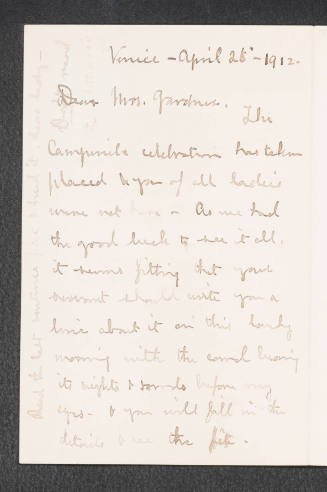 Venice - April 26 - 1912.
Dear Mrs. Gardner,
The
Campanile celebration has taken
placed & you of all ladies
were not here - As we had
the good luck to see it all,
it seems fitting that your
servant should write you a
line about it on this lovely
morning with the canal bearing
its sights & sounds before my
eyes - & you will fill in the
details & see the fête.
Read the last